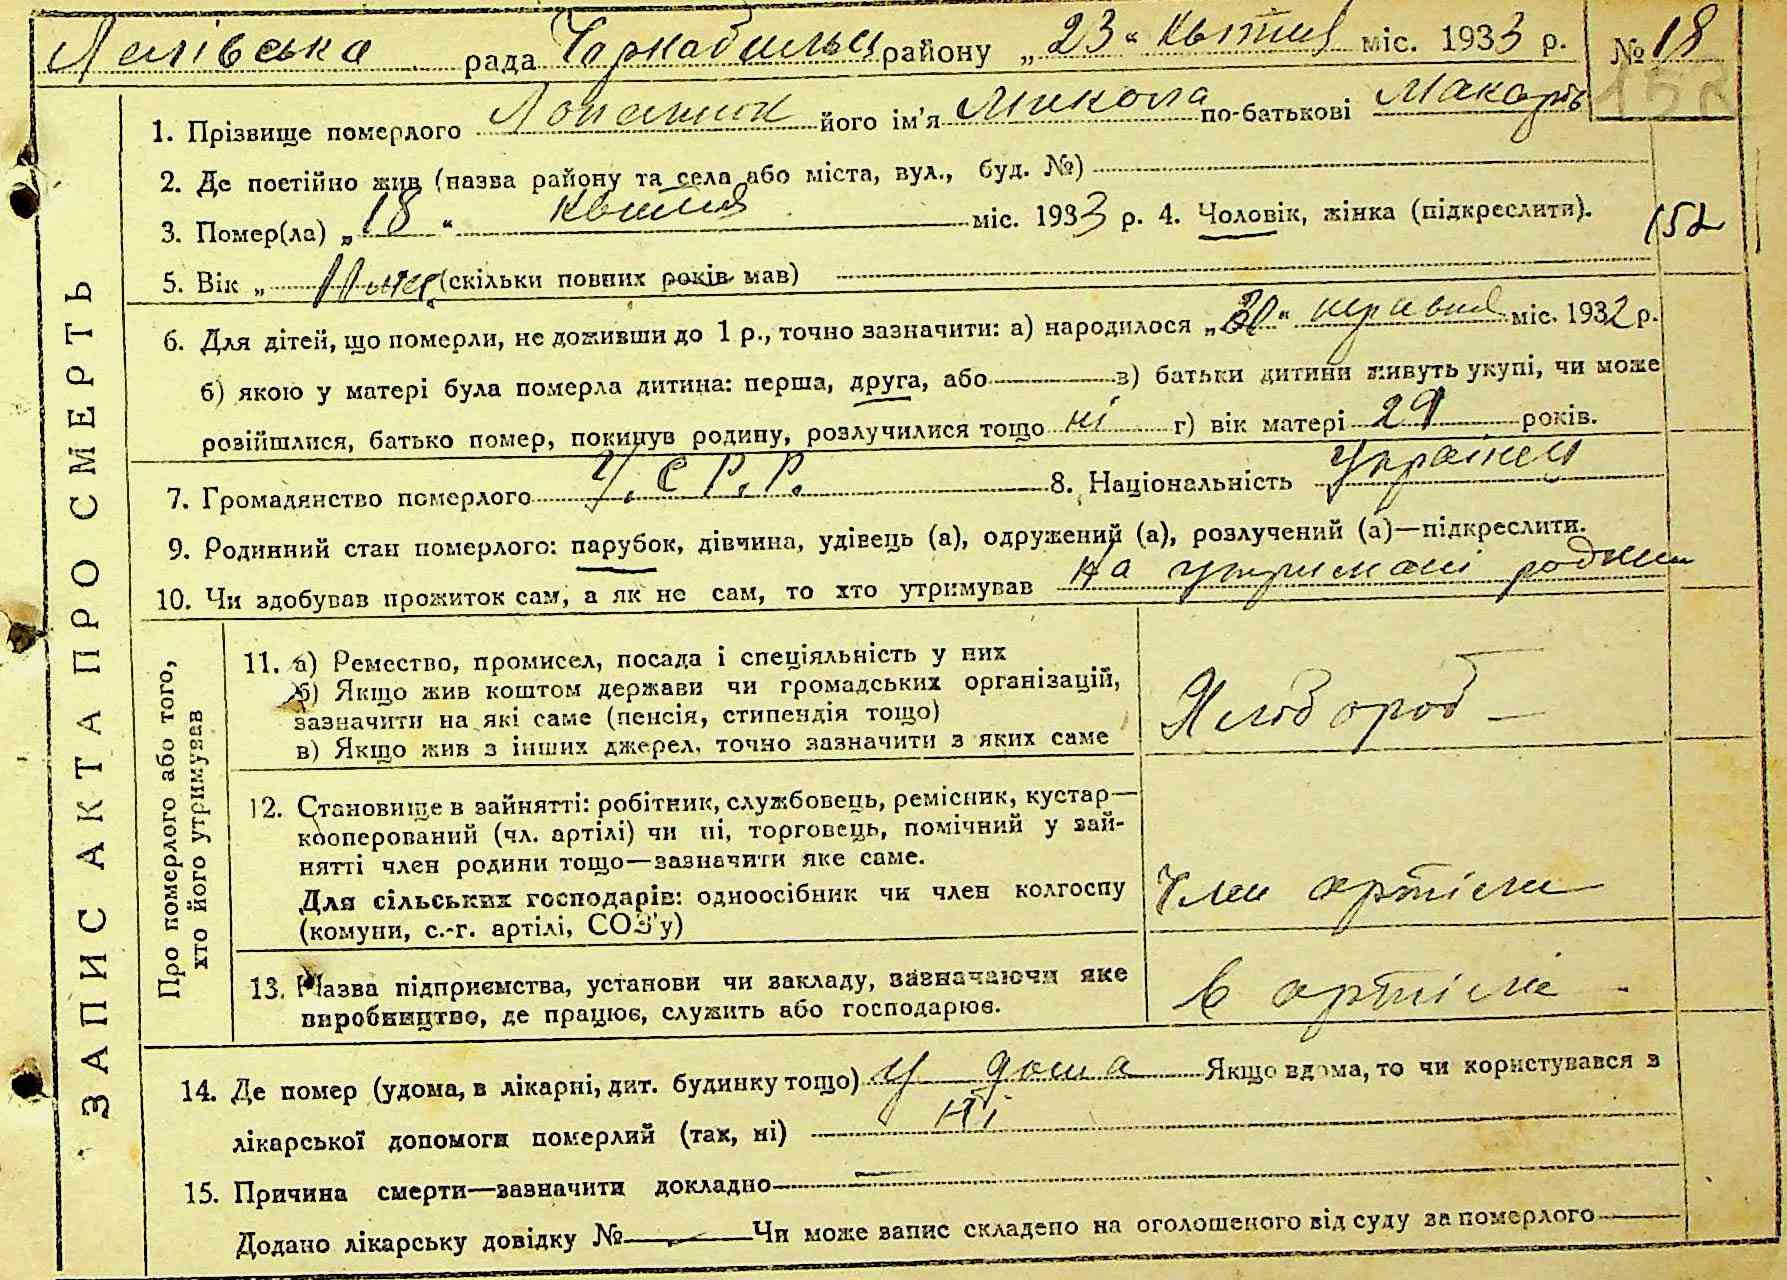 рада Чорнобильськ району „ 23 “ Квітня міс. 1933 р. № 18
152
1. Прізвище померлого його ім'я Микола по-батькові Макарів
2. Де постійно жив (назва району та села або міста, вул., буд. №)
3. Помер(ла) „ 18 “ квітня міс. 1933 р. 4. Чоловік, жінка (підкреслити).
152
5. Вік „ (скільки повних років мав)
6. Для дітей, що померли, не доживши до 1 р., точно зазначити: а) народилося „ “ червня міс. 1932 р.
б) якою у матері була померла дитина: перша, друга, або в) батьки дитини живуть укупі, чи може
розійшлися, батько помер, покинув родину, розлучилися тощо ні г) вік матері 29 років.
7. Громадянство померлого У.С.Р.Р. 8. Національність Українець
9. Родинний стан померлого: парубок, дівчина, удівець (а), одружений (а), розлучений (а)—підкреслити.
10. Чи здобував прожиток сам, а як не сам, то хто утримував На утримані родини
ЗАПИС АКТА ПРО СМЕРТЬ
Про померлого або того,
хто його утримував
11. а) Ремество, промисел, посада і спеціяльність у них
б) Якщо жив коштом держави чи громадських організацій,
зазначити на які саме (пенсія, стипендія тощо)
в) Якщо жив з інших джерел, точно зазначити з яких саме
Хлібороб —
12. Становище в зайнятті: робітник, службовець, ремісник, кустар—
кооперований (чл. артілі) чи ні, торговець, помічний у зай-
нятті член родини тощо—зазначити яке саме.
Для сільських господарів: одноосібник чи член колгоспу
(комуни, с.-г. артілі, СОЗ'у)
Член артіли
13. Назва підприємства, установи чи закладу, зазначаючи яке
виробництво, де працює, служить або господарює.
в артіли
14. Де помер (удома, в лікарні, дит. будинку тощо) у дома Якщо вдома, то чи користувався з
лікарської допомоги померлий (так, ні) ні
15. Причина смерти—зазначити докладно —
Додано лікарську довідку № — Чи може запис складено на оголошеного від суду за померлого